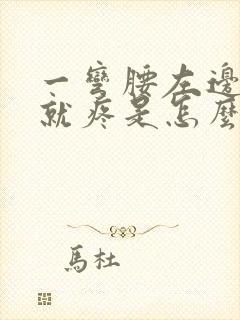 一彎腰左邊
就疼是怎麽
馬杜